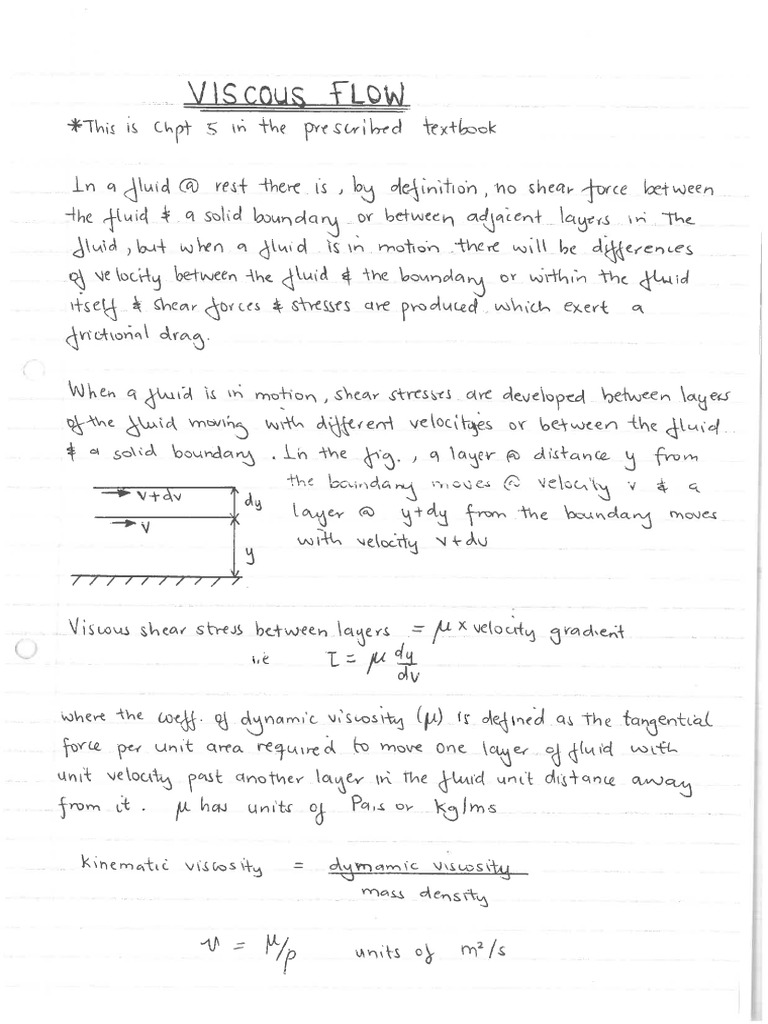 VISCOUS FLOW
*This is Chpt 5 in the prescribed textbook
In a fluid @ rest there is, by definition, no shear force between
the fluid & a solid boundary or between adjacent layers in the
fluid, but when a fluid is in motion there will be differences
of velocity between the fluid & the boundary or within the fluid
itself & shear forces & stresses are produced which exert a
frictional drag.
When a fluid is in motion, shear stresses are developed between layers
of the fluid moving with different velocityes or between the fluid
& a solid boundary. In the fig., a layer @ distance y from
the boundary moves @ velocity v & a
layer @ y+dy from the boundary moves
with velocity v+dv
v+dv
dy
v
y
Viscous shear stress between layers = μ x velocity gradient
i.e τ = μ dy/dv
where the coeff. of dynamic viscosity (μ) is defined as the tangential
force per unit area required to move one layer of fluid with
unit velocity past another layer in the fluid unit distance away
from it. μ has units of Pa.s or kg/ms
kinematic viscosity = dymamic viscosity
mass density
ν = μ/ρ units of m²/s